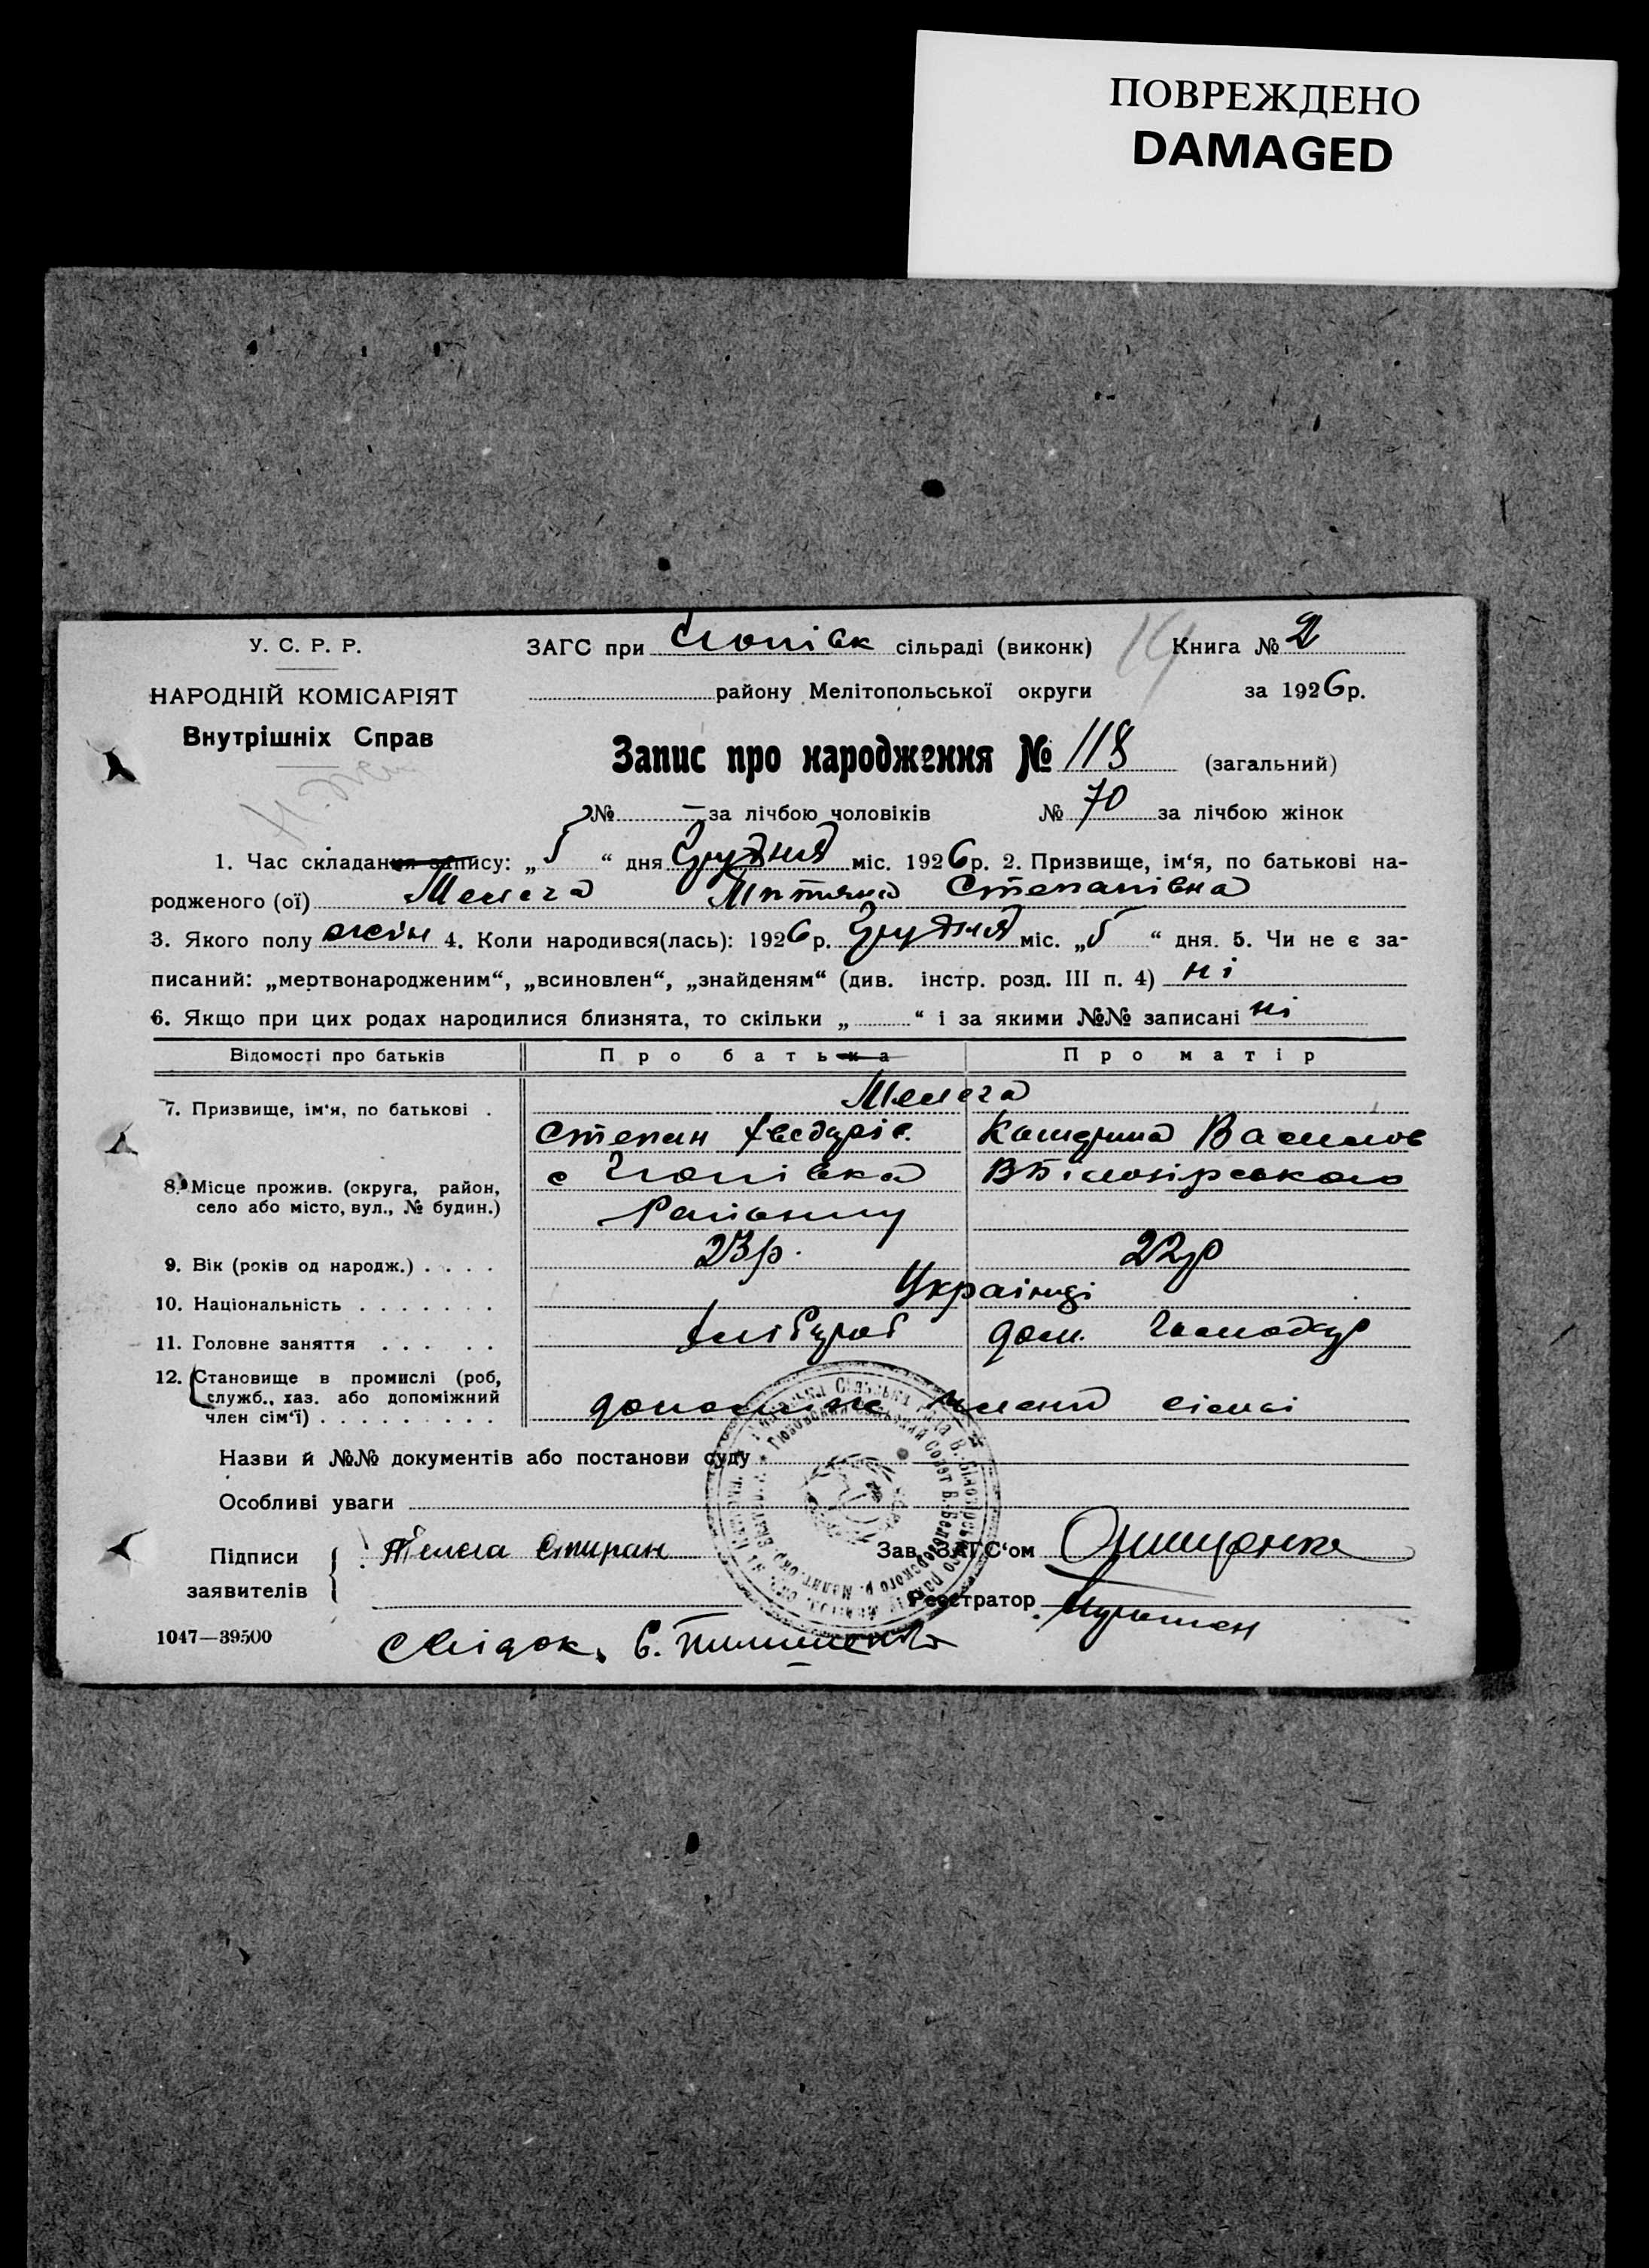 ПОВРЕЖДЕНО
DAMAGED
У. С. Р. Р.
ЗАГС при сільраді (виконк) 14 Книга № 2
НАРОДНІЙ КОМІСАРІЯТ
району Мелітопольської округи за 1926 р.
Внутрішніх Справ
Запис про народження № 118 (загальний)
№ — за лічбою чоловіків № 70 за лічбою жінок
1. Час складання запису: „5“ дня Грудня міс. 1926 р. 2. Призвище, ім‘я, по батькові на-
родженого (ої) Степанівна
3. Якого полу жін 4. Коли народився(лась): 1926 р. Грудня міс. „5“ дня. 5. Чи не є за-
писаний: „мертвонародженим“, „всиновлен“, „знайденям“ (див. інстр. розд. III п. 4) ні
6. Якщо при цих родах народилися близнята, то скільки „ “ і за якими №№ записані ні
Відомості про батьків Про батька Про матір
7. Призвище, ім‘я, по батькові .
Степан Василов
8. Місце прожив. (округа, район,
село або місто, вул., № будин.)
с В Білозірського
Району
9. Вік (років од народж.) . . . . 23 р. 22 р
10. Національність . . . . . . . Українці
11. Головне заняття . . . . . хлібороб дом. господар
12. Становище в промислі (роб,
служб., хаз. або допоміжний
член сім‘ї) . . . . . . . . .
допоміж члени сімї
Назви й №№ документів або постанови суду
Особливі уваги
Підписи
заявителів
Зав. ЗАГС‘ом
Реєстратор
1047—39500
Свідок